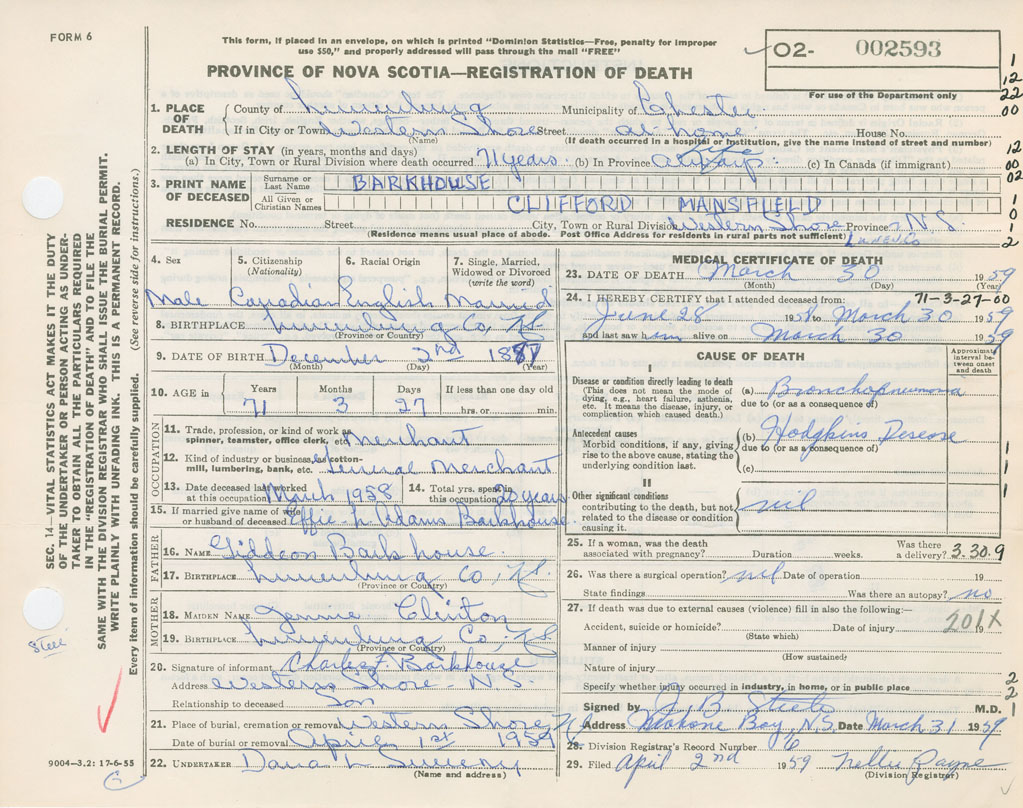 FORM 6
This form, if placed in an envelope, on which is printed "Dominion Statistics—Free, penalty for improper
use $50," and properly addressed will pass through the mail "FREE"
02- 002593
For use of the Department only
PROVINCE OF NOVA SCOTIA—REGISTRATION OF DEATH
1. PLACE OF DEATH County of Lunenburg Municipality of Chester
If in City or Town Western Shore Street at home House No.
(Name) (If death occurred in a hospital or institution, give the name instead of street and number)
2. LENGTH OF STAY (in years, months and days)
(a) In City, Town or Rural Division where death occurred 71 years (b) In Province Life (c) In Canada (if immigrant)
3. PRINT NAME OF DECEASED Surname or Last Name BARKHOUSE
All Given or Christian Names CLIFFORD MANSFIELD
RESIDENCE No. Street City, Town or Rural Division Western Shore Province N.S.
(Residence means usual place of abode. Post Office Address for residents in rural parts not sufficient) Lunen Co
4. Sex 5. Citizenship (Nationality) 6. Racial Origin 7. Single, Married, Widowed or Divorced (write the word)
Male Canadian English Married
8. BIRTHPLACE Lunenburg Co, N.S.
(Province or Country)
9. DATE OF BIRTH December 3rd 1887
(Month) (Day) (Year)
10. AGE in Years Months Days If less than one day old
71 3 27 hrs. or min.
OCCUPATION
11. Trade, profession, or kind of work as spinner, teamster, office clerk, etc. Merchant
12. Kind of industry or business, as cotton-mill, lumbering, bank, etc. General Merchant
13. Date deceased last worked at this occupation March 1958 14. Total yrs. spent in this occupation 20 years
15. If married give name of wife or husband of deceased Effie L Adams Barkhouse
FATHER
16. NAME Giddeon Barkhouse
17. BIRTHPLACE Lunenburg Co, N.S.
(Province or Country)
MOTHER
18. MAIDEN NAME Jennie Clinton
19. BIRTHPLACE Lunenburg Co. N.S.
(Province or Country)
20. Signature of informant Charles F Barkhouse
Address Western Shore - N.S.
Relationship to deceased Son
21. Place of burial, cremation or removal Western Shore
Date of burial or removal April 1st 1959
22. UNDERTAKER Dana L Sweeny
(Name and address)
MEDICAL CERTIFICATE OF DEATH
23. DATE OF DEATH March 30 1959
(Month) (Day) (Year)
24. I HEREBY CERTIFY that I attended deceased from: 71-3-27-00
June 28 1958 to March 30 1959
and last saw him alive on March 30 1959
CAUSE OF DEATH
Approximate interval between onset and death
I
Disease or condition directly leading to death (a) Bronchopneumonia
(This does not mean the mode of dying, e.g., heart failure, asthenia, etc. It means the disease, injury, or complication which caused death.)
due to (or as a consequence of)
Antecedent causes (b) Hodgkins Disease
Morbid conditions, if any, giving rise to the above cause, stating the underlying condition last.
due to (or as a consequence of)
(c)
II
Other significant conditions nil
contributing to the death, but not related to the disease or condition causing it.
25. If a woman, was the death associated with pregnancy? Duration weeks. Was there a delivery? 3.30.9
26. Was there a surgical operation? nil Date of operation 19
State findings Was there an autopsy? no
27. If death was due to external causes (violence) fill in also the following:—
Accident, suicide or homicide? Date of injury 19 201X
(State which)
Manner of injury
(How sustained)
Nature of injury
Specify whether injury occurred in industry, in home, or in public place
Signed by M.D.
Address Mahone Bay, N.S. Date March 31 1959
28. Division Registrar's Record Number 16
29. Filed April 2nd 1959 Nellie Payne
(Division Registrar)
SEC. 14—VITAL STATISTICS ACT MAKES IT THE DUTY
OF THE UNDERTAKER OR PERSON ACTING AS UNDER-
TAKER TO OBTAIN ALL THE PARTICULARS REQUIRED
IN THE "REGISTRATION OF DEATH" AND TO FILE THE
SAME WITH THE DIVISION REGISTRAR WHO SHALL ISSUE THE BURIAL PERMIT.
WRITE PLAINLY WITH UNFADING INK. THIS IS A PERMANENT RECORD.
Every item of information should be carefully supplied. (See reverse side for instructions.)
9004—3.2: 17-6-55
1
12
22
00
12
00
02
1
0
1
2
1
1
1
2
2
1